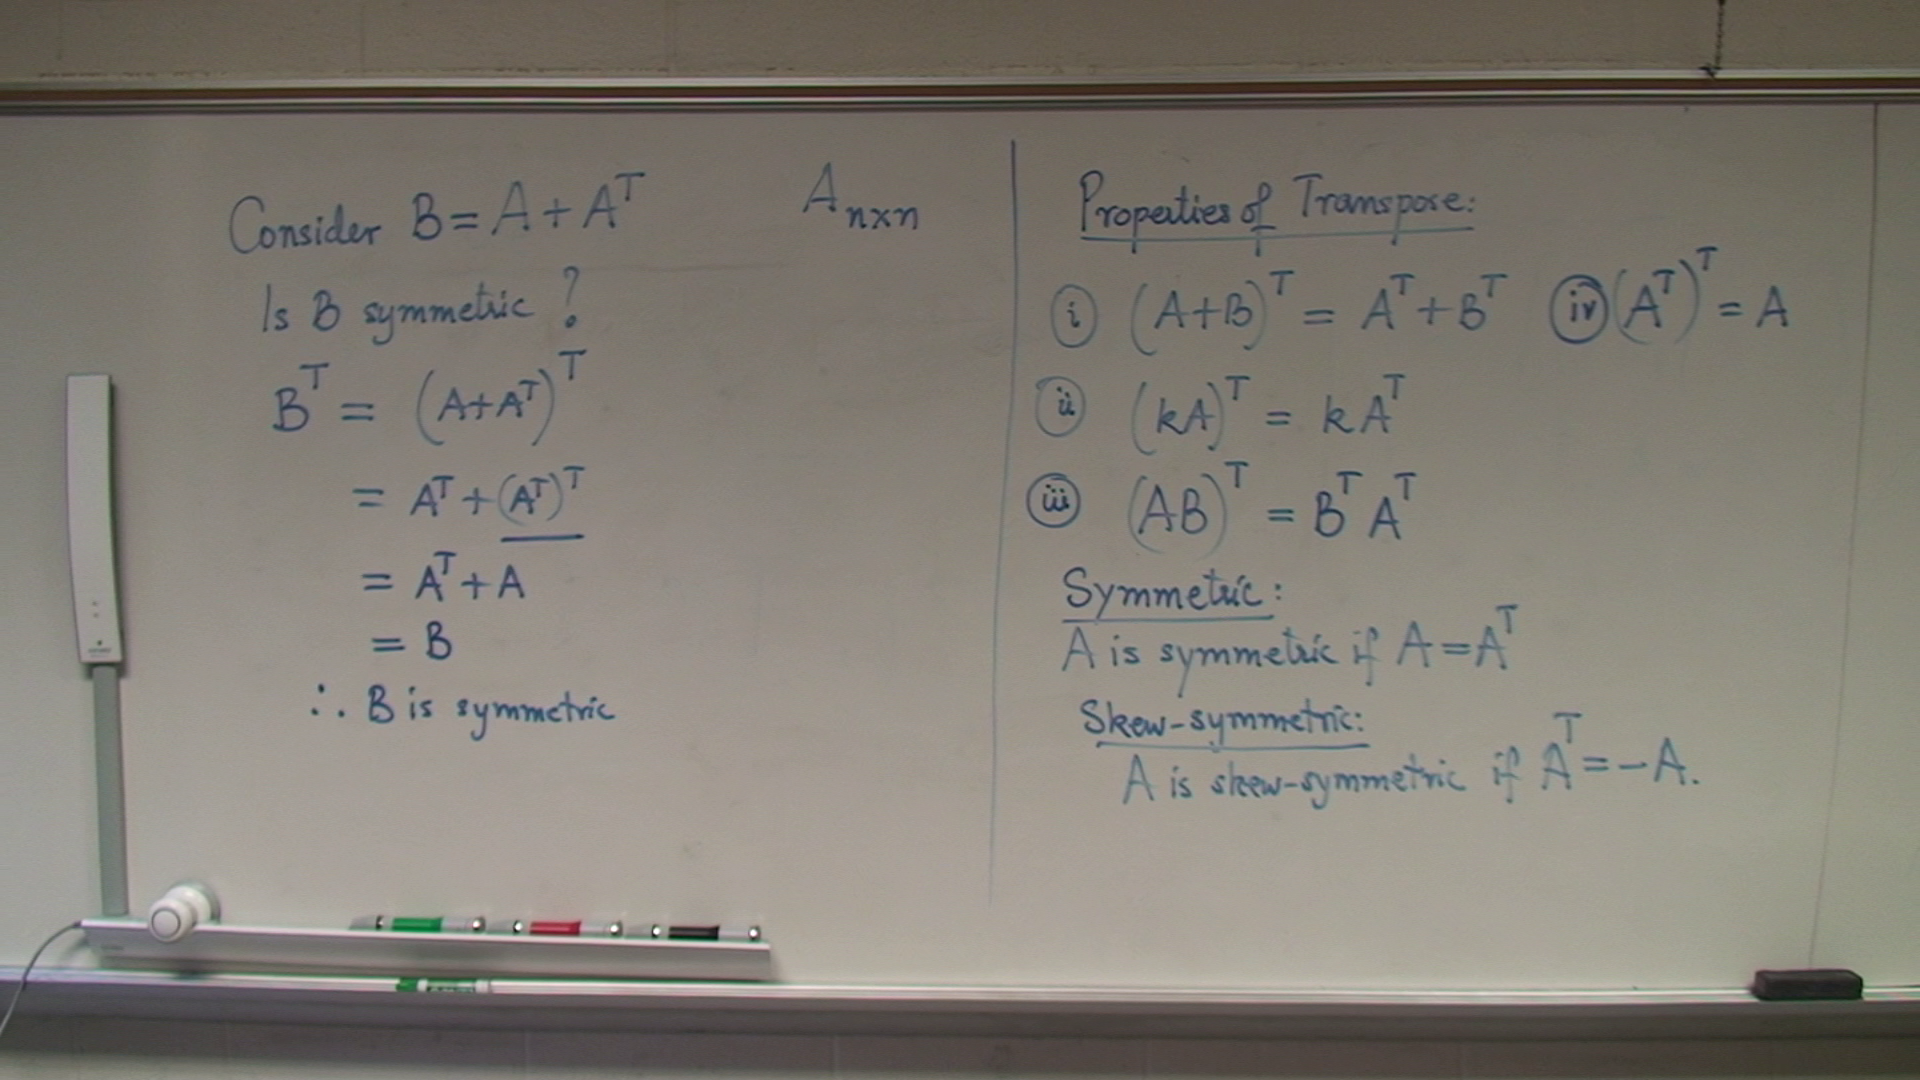 Consider B = A + Aᵀ
Aₙₓₙ
Is B symmetric?
Bᵀ = (A+Aᵀ)ᵀ
= Aᵀ + (Aᵀ)ᵀ
= Aᵀ + A
= B
∴ B is symmetric
Properties of Transpose:
(i) (A+B)ᵀ = Aᵀ + Bᵀ (iv) (Aᵀ)ᵀ = A
(ii) (kA)ᵀ = kAᵀ
(iii) (AB)ᵀ = BᵀAᵀ
Symmetric:
A is symmetric if A = Aᵀ
Skew-symmetric:
A is skew-symmetric if Aᵀ = -A.